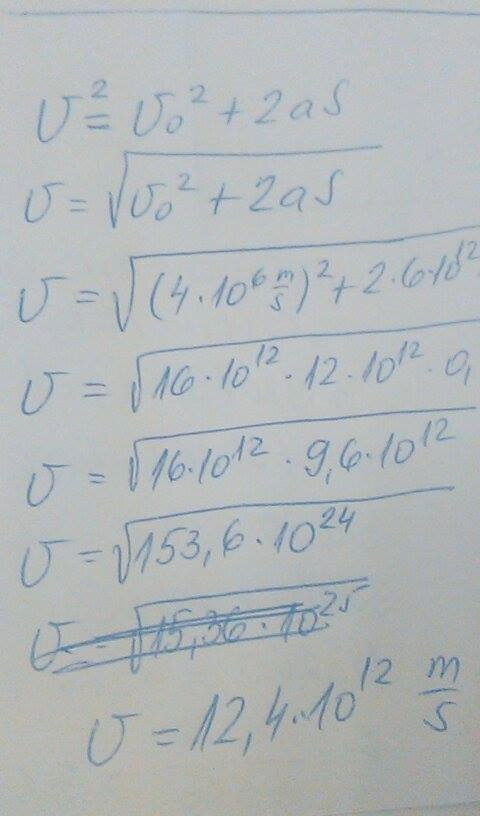 υ² = υ₀² + 2aS
υ = √(υ₀² + 2aS)
υ = √((4·10⁶ m/s)² + 2·6·10¹²
υ = √(16·10¹² · 12·10¹² · 0,
υ = √(16·10¹² · 9,6·10¹²)
υ = √(153,6·10²⁴)
υ = √(15,36·10²⁵)
υ = 12,4·10¹² m/s